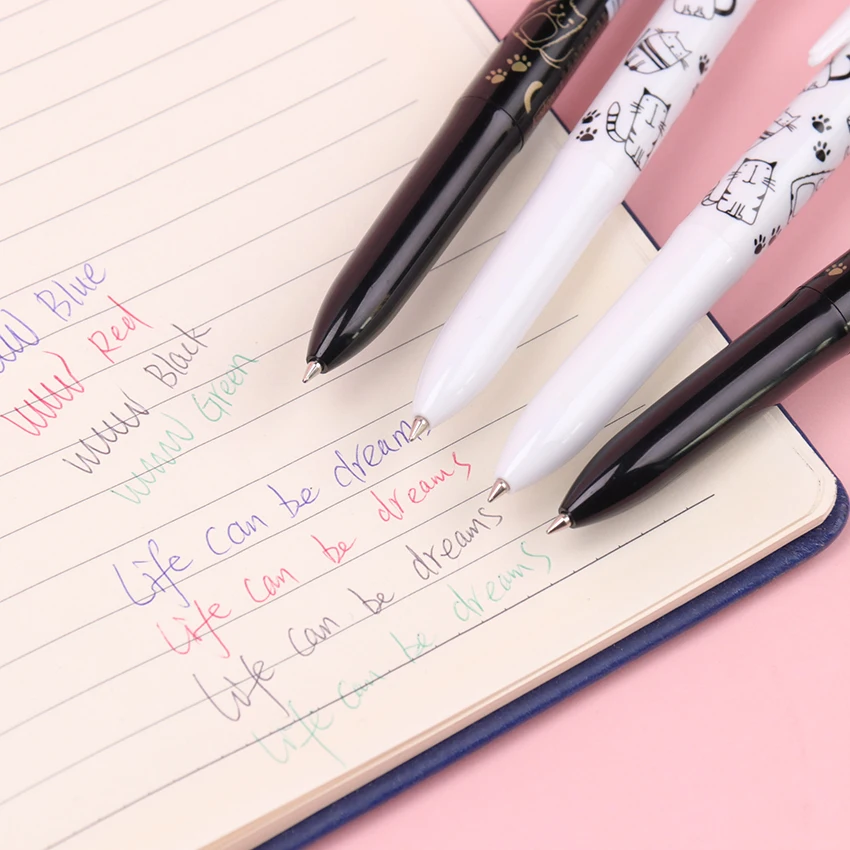 Blue
Red
Black
Green
Life can be dreams
Life can be dreams
Life can be dreams
Life can be dreams